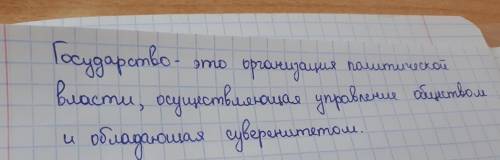 Государство - это организация политической
власти, осуществляющая управление обществом
и обладающая суверенитетом.